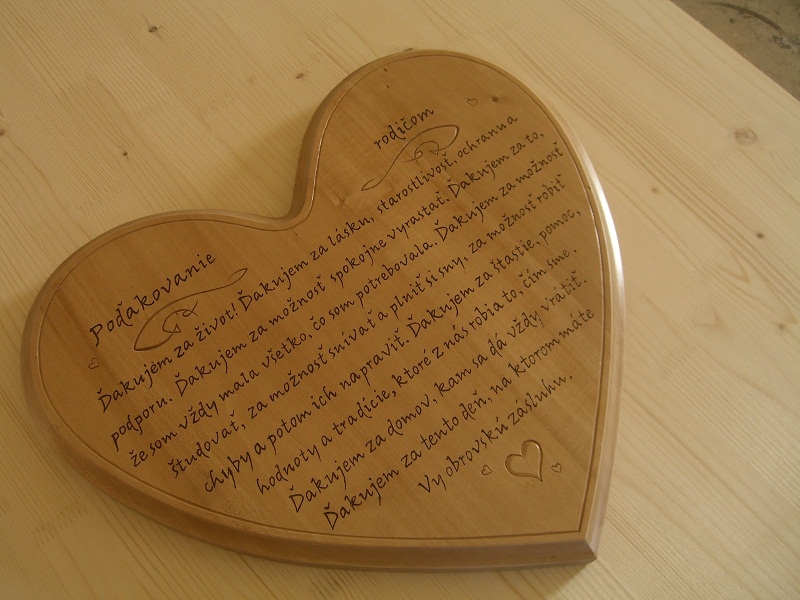 Poďakovanie rodičom
Ďakujem za život! Ďakujem za lásku, starostlivosť, ochranu a
podporu. Ďakujem za možnosť spokojne vyrastať. Ďakujem za to,
že som vždy mala všetko, čo som potrebovala. Ďakujem za možnosť
študovať, za možnosť snívať a plniť si sny, za možnosť robiť
chyby a potom ich napraviť. Ďakujem za šťastie, pomoc,
hodnoty a tradície, ktoré z nás robia to, čím sme.
Ďakujem za domov, kam sa dá vždy vrátiť.
Ďakujem za tento deň, na ktorom máte
Vy obrovskú zásluhu.